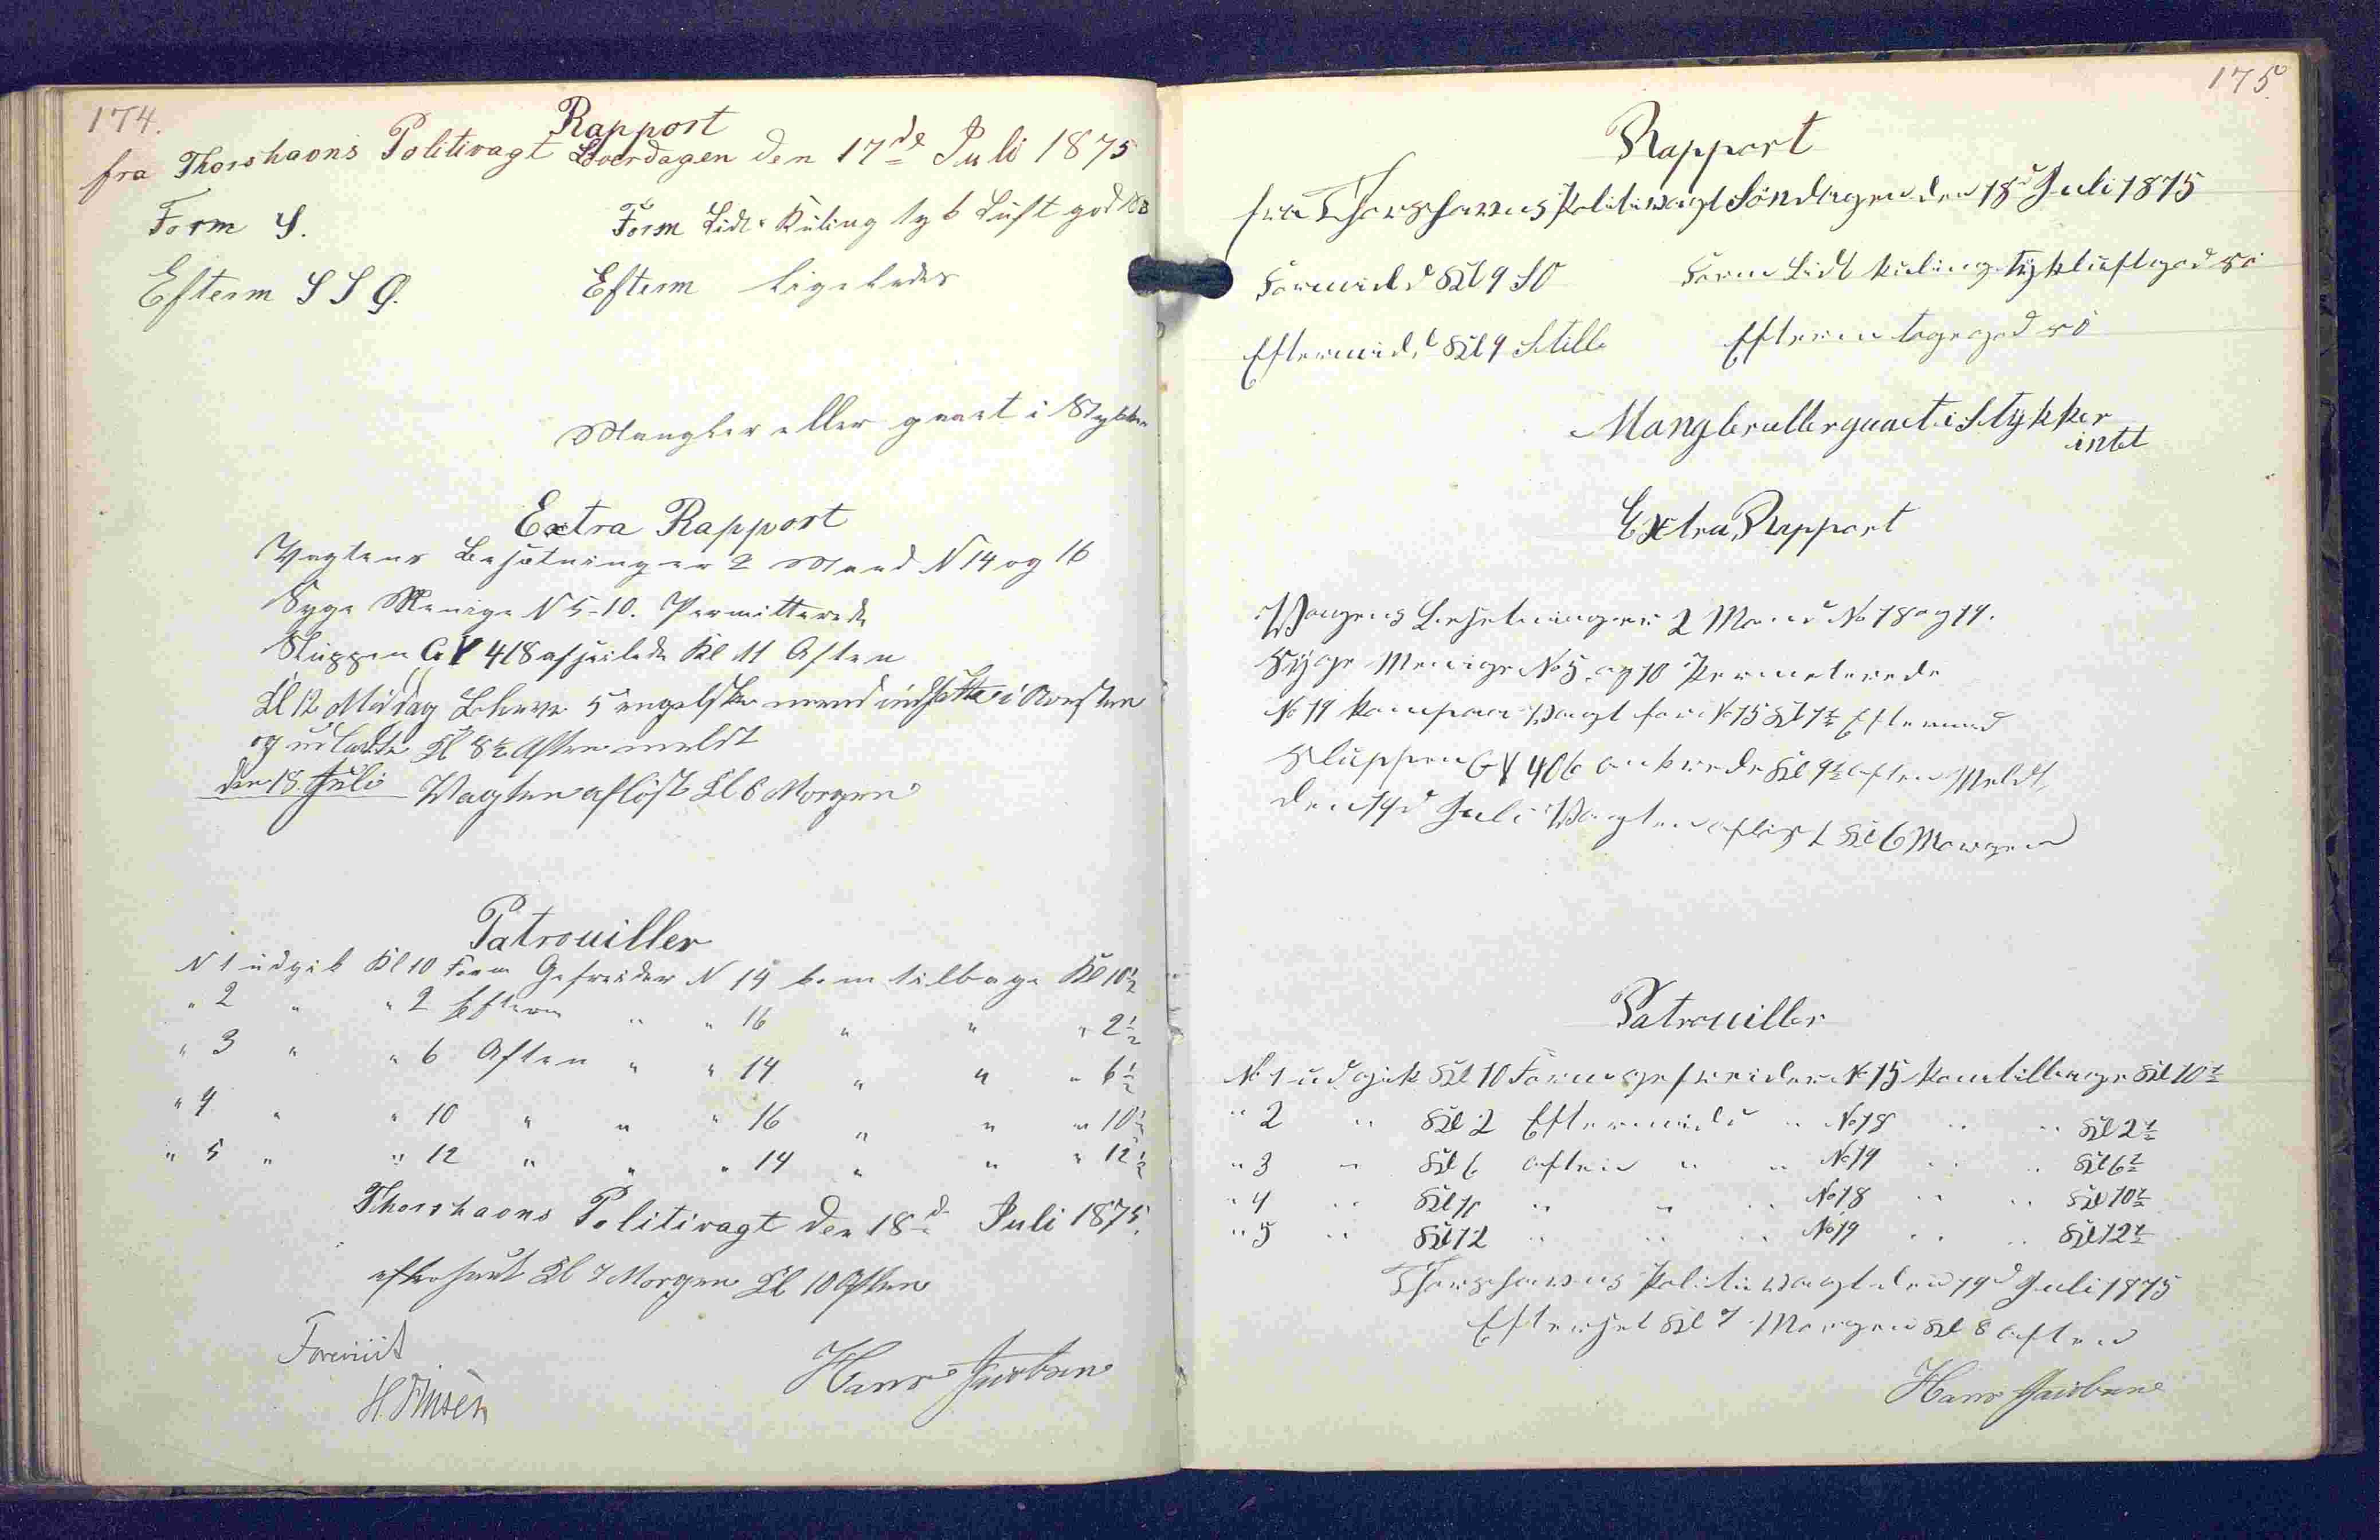 174.
Rapport
fra Thorshavns Politivagt Løverdagen den 17de Juli 1875
Form S.
Form Lidt Kuling tyk Luft god Sø
Efterm S S O.
Efterm ligeledes
Mangler eller gaaet i Stykker
Extra Rapport
Vagtens Besætning er 2 Mand N 14 og 16
Syge Menige N 5-10. Permitterede
Sluppen GY 418 afseilede Kl 11 Aften
Kl 12 Middag Blewe 5 engelske mænd indsatte i Aresten
og udladte Kl 8½ Aften meldt
den 18 Juli Vagten afløst Kl 6 Morgen
Patrouiller
N 1 udgik Kl 10 Form Gefreider N 14 kom tilbage Kl 10½
" 2 " " 2 Efterm " " 16 " " " 2½
" 3 " " 6 Aften " " 14 " " " 6½
" 4 " " 10 " " " 16 " " " 10½
" 5 " " 12 " " " 14 " " " 12½
Thorshavns Politivagt den 18d Juli 1875.
efterseet Kl 7 Morgen Kl 10 Aften
Foreviist
H. Finsen
Hans Jacobsen
175.
Rapport
fra Thorshavns Politivagt Söndagen den 18d Juli 1875
Formidd Kl 9 SO
Form Lidt kuling tyk luft god sö
Eftermidd Kl 9 Stille
Efterm tage god sö
Mangler eller gaaet i Stykker
intet
Extra Rapport
Wagens Besetning er 2 Mand No 18 og 19.
Syge Menige No 5 og 10 Permeterede
No 19 kom paa Wagt for No 15 Kl 1½ Eftermed
Sluppen GY 406 ankrede Kl 9½ aften Meldt
den 19d Juli Wagten aflöst Kl 6 Morgen
Patrouiller
No 1 udgik Kl 10 Form gefreider No 15 kom tilbage Kl 10½
" 2 " Kl 2 Eftermidd " No 18 " " Kl 2½
" 3 " Kl 6 aften " " No 19 " " Kl 6½
" 4 " Kl 10 " " " No 18 " " Kl 10½
" 5 " Kl 12 " " " No 19 " " Kl 12½
Thorshavns Politiwagt den 19d Juli 1875
Efterset Kl 7 Morgen Kl 8 aften
Hans Jacobsen